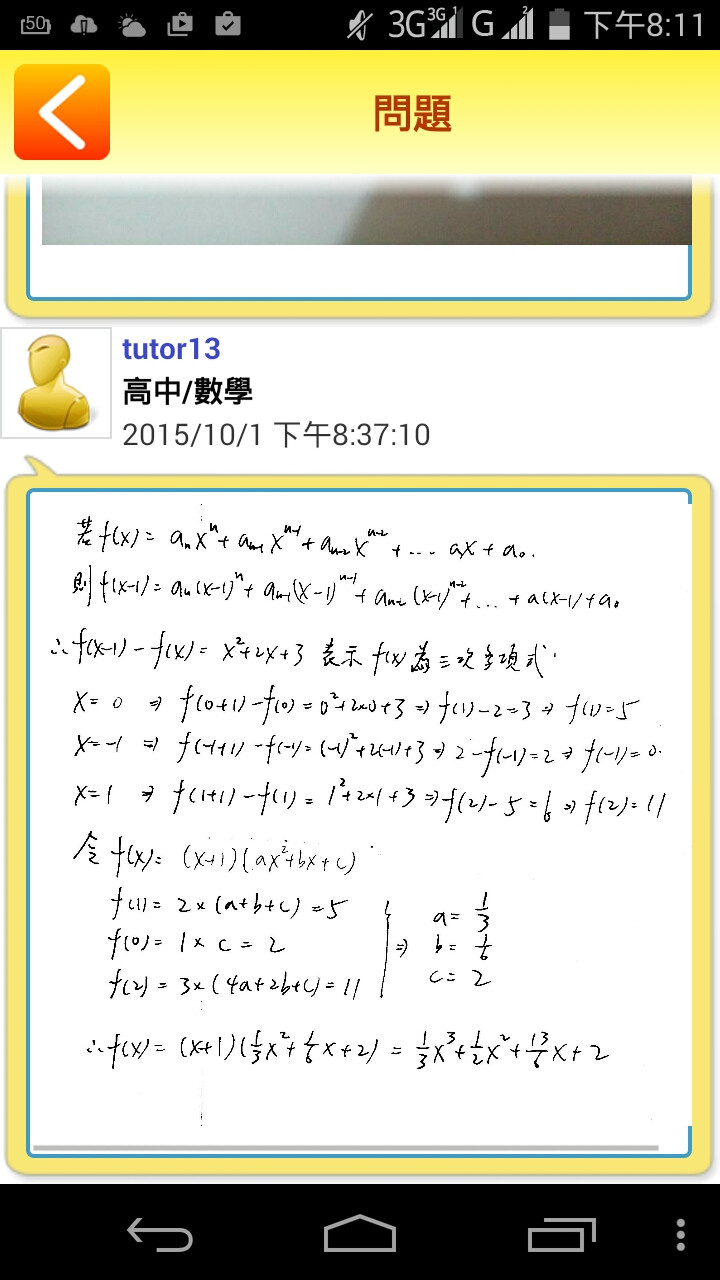 50 3G 3G 1 G 2 下午8:11
問題
tutor13
高中/數學
2015/10/1 下午8:37:10
若 f(x) = aₙxⁿ + aₙ₋₁xⁿ⁻¹ + aₙ₋₂xⁿ⁻² + ... ax + a₀.
則 f(x-1) = aₙ(x-1)ⁿ + aₙ₋₁(x-1)ⁿ⁻¹ + aₙ₋₂(x-1)ⁿ⁻² + ... + a(x-1) + a₀
∴ f(x-1) - f(x) = x²+2x+3 表示 f(x) 為三次多項式.
x = 0 ⇒ f(0+1) - f(0) = 0²+2×0+3 ⇒ f(1) - 2 = 3 ⇒ f(1) = 5
x = -1 ⇒ f(-1+1) - f(-1) = (-1)²+2(-1)+3 ⇒ 2 - f(-1) = 2 ⇒ f(-1) = 0.
x = 1 ⇒ f(1+1) - f(1) = 1²+2×1+3 ⇒ f(2) - 5 = 6 ⇒ f(2) = 11
令 f(x) = (x+1)(ax²+bx+c)
f(1) = 2×(a+b+c) = 5
f(0) = 1×c = 2
f(2) = 3×(4a+2b+c) = 11
⇒ a = 1/3
b = 1/6
c = 2
∴ f(x) = (x+1)(1/3x²+1/6x+2) = 1/3x³+1/2x²+13/6x+2